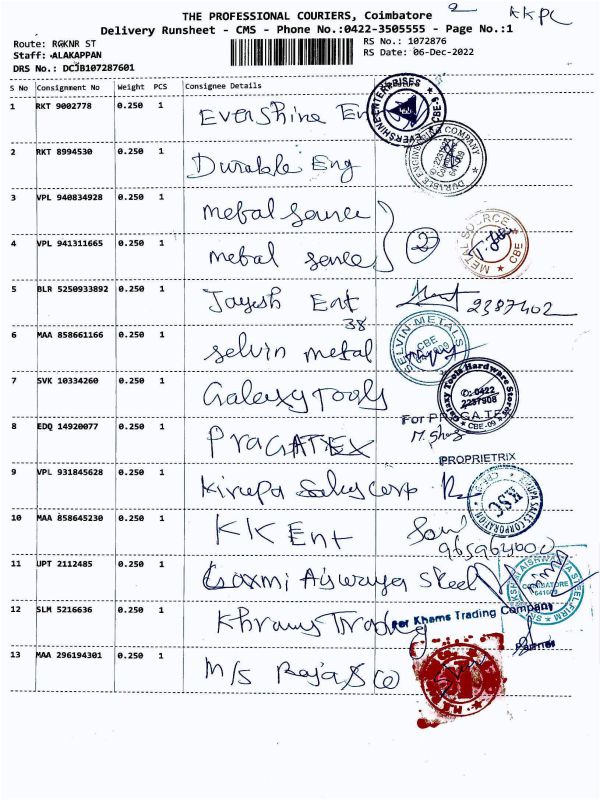 THE PROFESSIONAL COURIERS, Coimbatore
KKPC
Delivery Runsheet - CMS - Phone No.:0422-3505555 - Page No.:1
Route: RGKNR ST
RS No.: 1072876
Staff: ALAKAPPAN
RS Date: 06-Dec-2022
DRS No.: DCJB107287601
S No Consignment No Weight PCS Consignee Details
1 RKT 9002778 0.250 1 Evershine En
EVERSHINE ENTERPRISES CBE-9
2 RKT 8994530 0.250 1 Durable Eng
DURABLE ENGINEERING COMPANY
3 VPL 940834928 0.250 1 metal source
2
4 VPL 941311665 0.250 1 metal source
METAL SOURCE CBE
5 BLR 5250933892 0.250 1 Jayesh Ent 2387402
38
6 MAA 858661166 0.250 1 selvin metal
SELVIN METALS CBE
7 SVK 10334260 0.250 1 Galexy Tools
Galaxy Tools Hardware Stores
0422
2237908
CBE-09
For PRAGATEX
8 EDQ 14920077 0.250 1 PRAGATEX
PROPRIETRIX
9 VPL 931845628 0.250 1 Kirupa Sales Corp
KIRUPA SALES CORPORATION
KSC
10 MAA 858645230 0.250 1 KK Ent
11 UPT 2112485 0.250 1 Laxmi Aiswarya Steel
COIMBATORE
641009
For Khams Trading Company
12 SLM 5216636 0.250 1 Khrams Trading
Partner
13 MAA 296194301 0.250 1 M/s Raja & Co